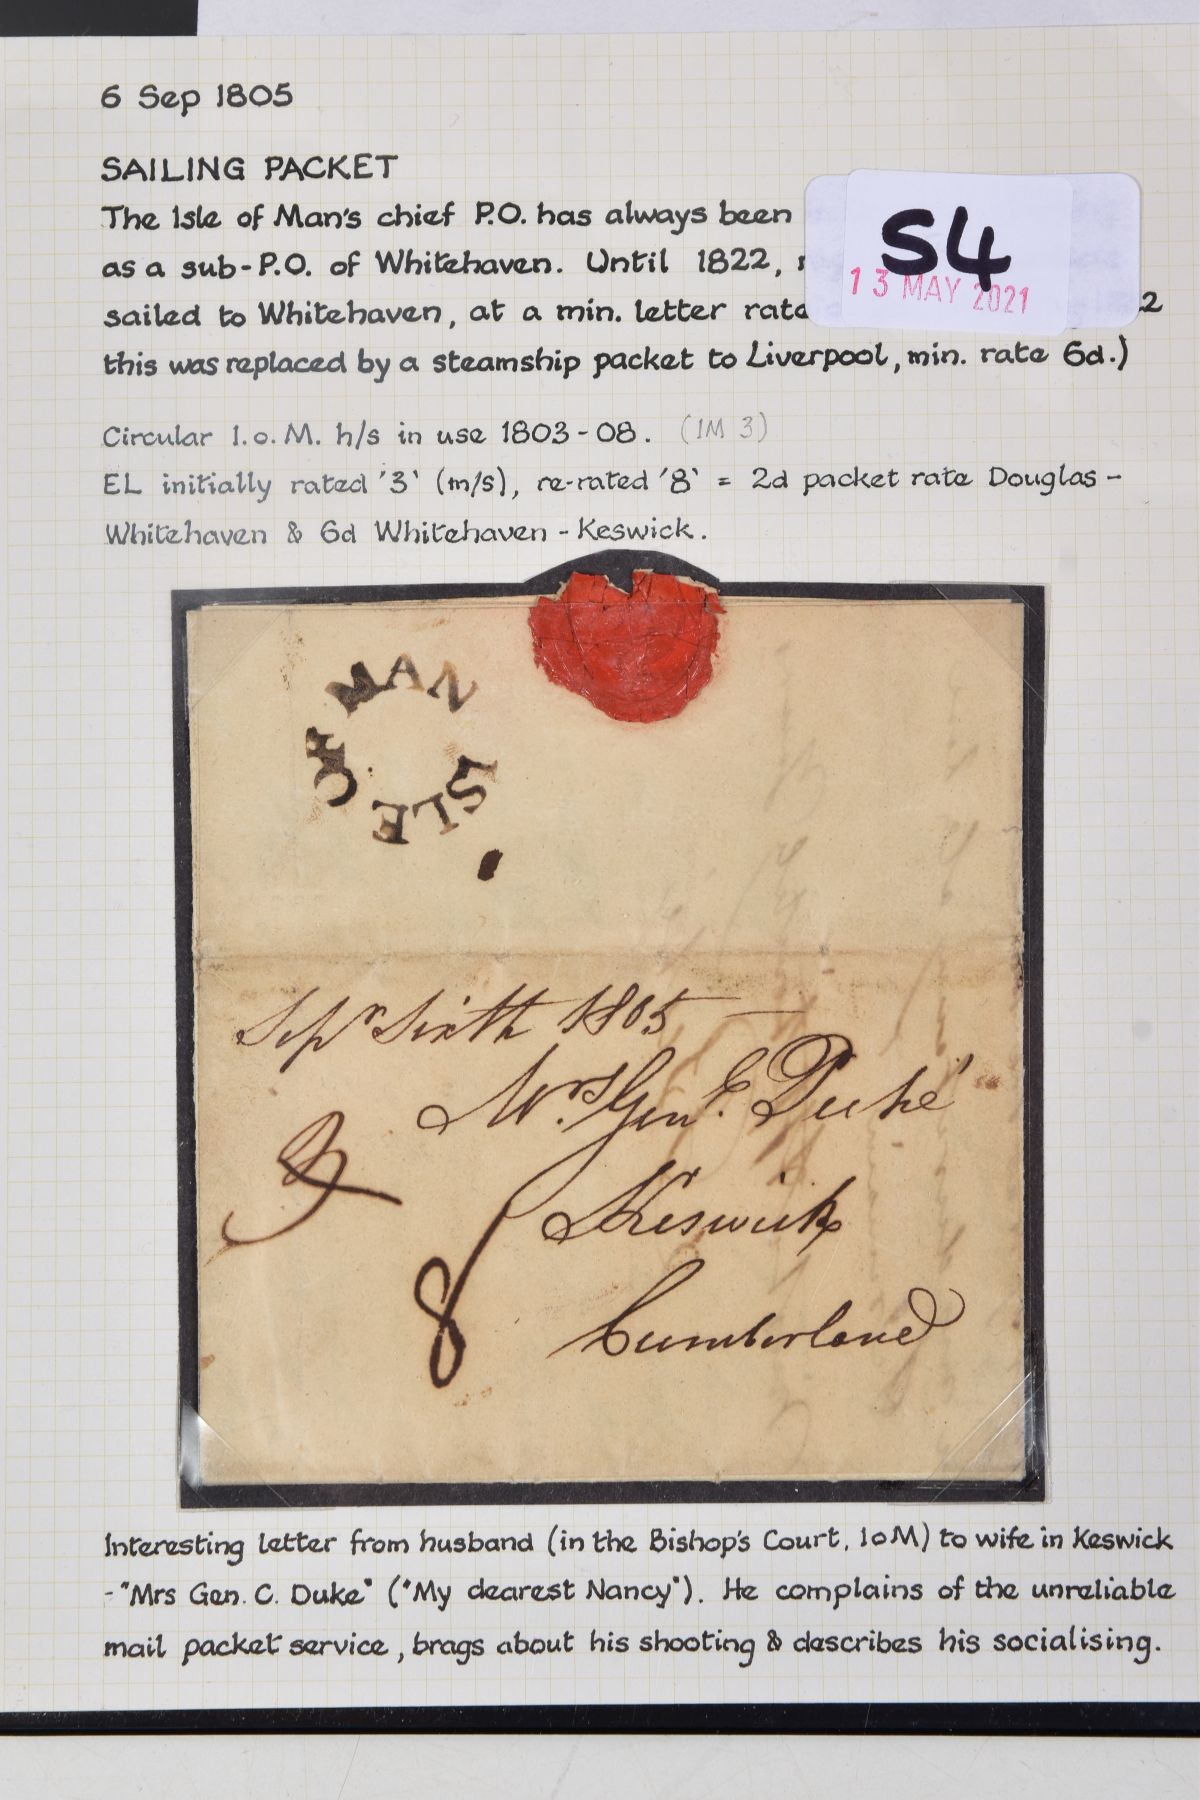 6 Sep 1805
SAILING PACKET
The Isle of Man's chief P.O. has always been
as a sub-P.O. of Whitehaven. Until 1822,
sailed to Whitehaven, at a min. letter rate
this was replaced by a steamship packet to Liverpool, min. rate 6d.)
S4
13 MAY 2021
Circular I.o.M. h/s in use 1803-08. (IM 3)
EL initially rated '3' (m/s), re-rated '8' = 2d packet rate Douglas-
Whitehaven & 6d Whitehaven-Keswick.
ISLE OF MAN
Sepr Sixth 1805 —
Mrs Genl. C Duke
3
Keswick
8
Cumberland
Interesting letter from husband (in the Bishop's Court, IoM) to wife in Keswick
-"Mrs Gen. C. Duke" ("My dearest Nancy"). He complains of the unreliable
mail packet service, brags about his shooting & describes his socialising.